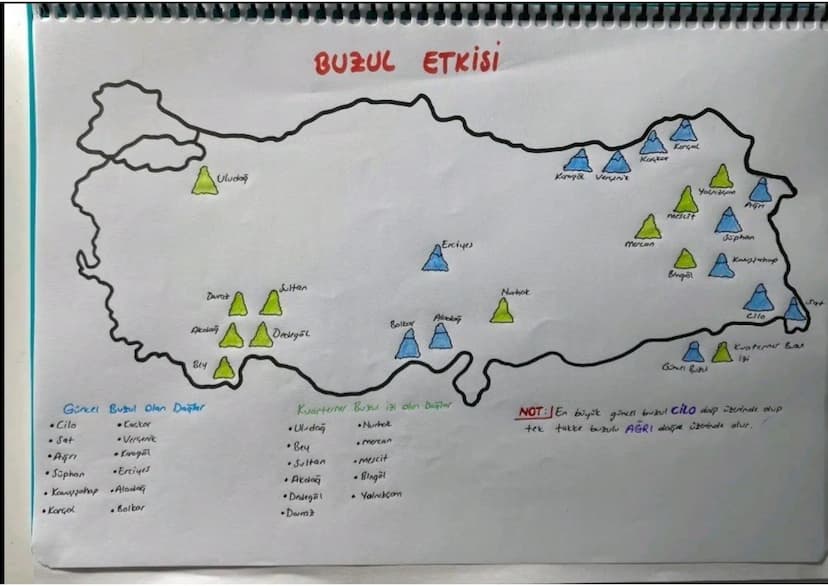 BUZUL ETKİSİ
Uludağ
Karçal
Kaçkar
Karagöl
Verşenik
Yalnızçam
Ağrı
Mescit
Süphan
Mercan
Erciyes
Bingöl
Kavuşşahap
Sultan
Davraz
Nurhak
Cilo
Sat
Akdağ
Dedegöl
Bolkar
Aladağ
Bey
Güncel Buzul
Kuaterner Buzul
izi
Güncel Buzul Olan Dağlar
• Cilo
• Sat
• Ağrı
• Süphan
• Kavuşşahap
• Karçal
• Kaçkar
• Verşenik
• Karagöl
• Erciyes
• Aladağ
• Bolkar
Kuaterner Buzul izi olan Dağlar
• Uludağ
• Bey
• Sultan
• Akdağ
• Dedegöl
• Davraz
• Nurhak
• Mercan
• Mescit
• Bingöl
• Yalnızçam
NOT:! En büyük güncel buzul CİLO dağı üzerinde olup
tek takke buzulu AĞRI dağı üzerinde olur.